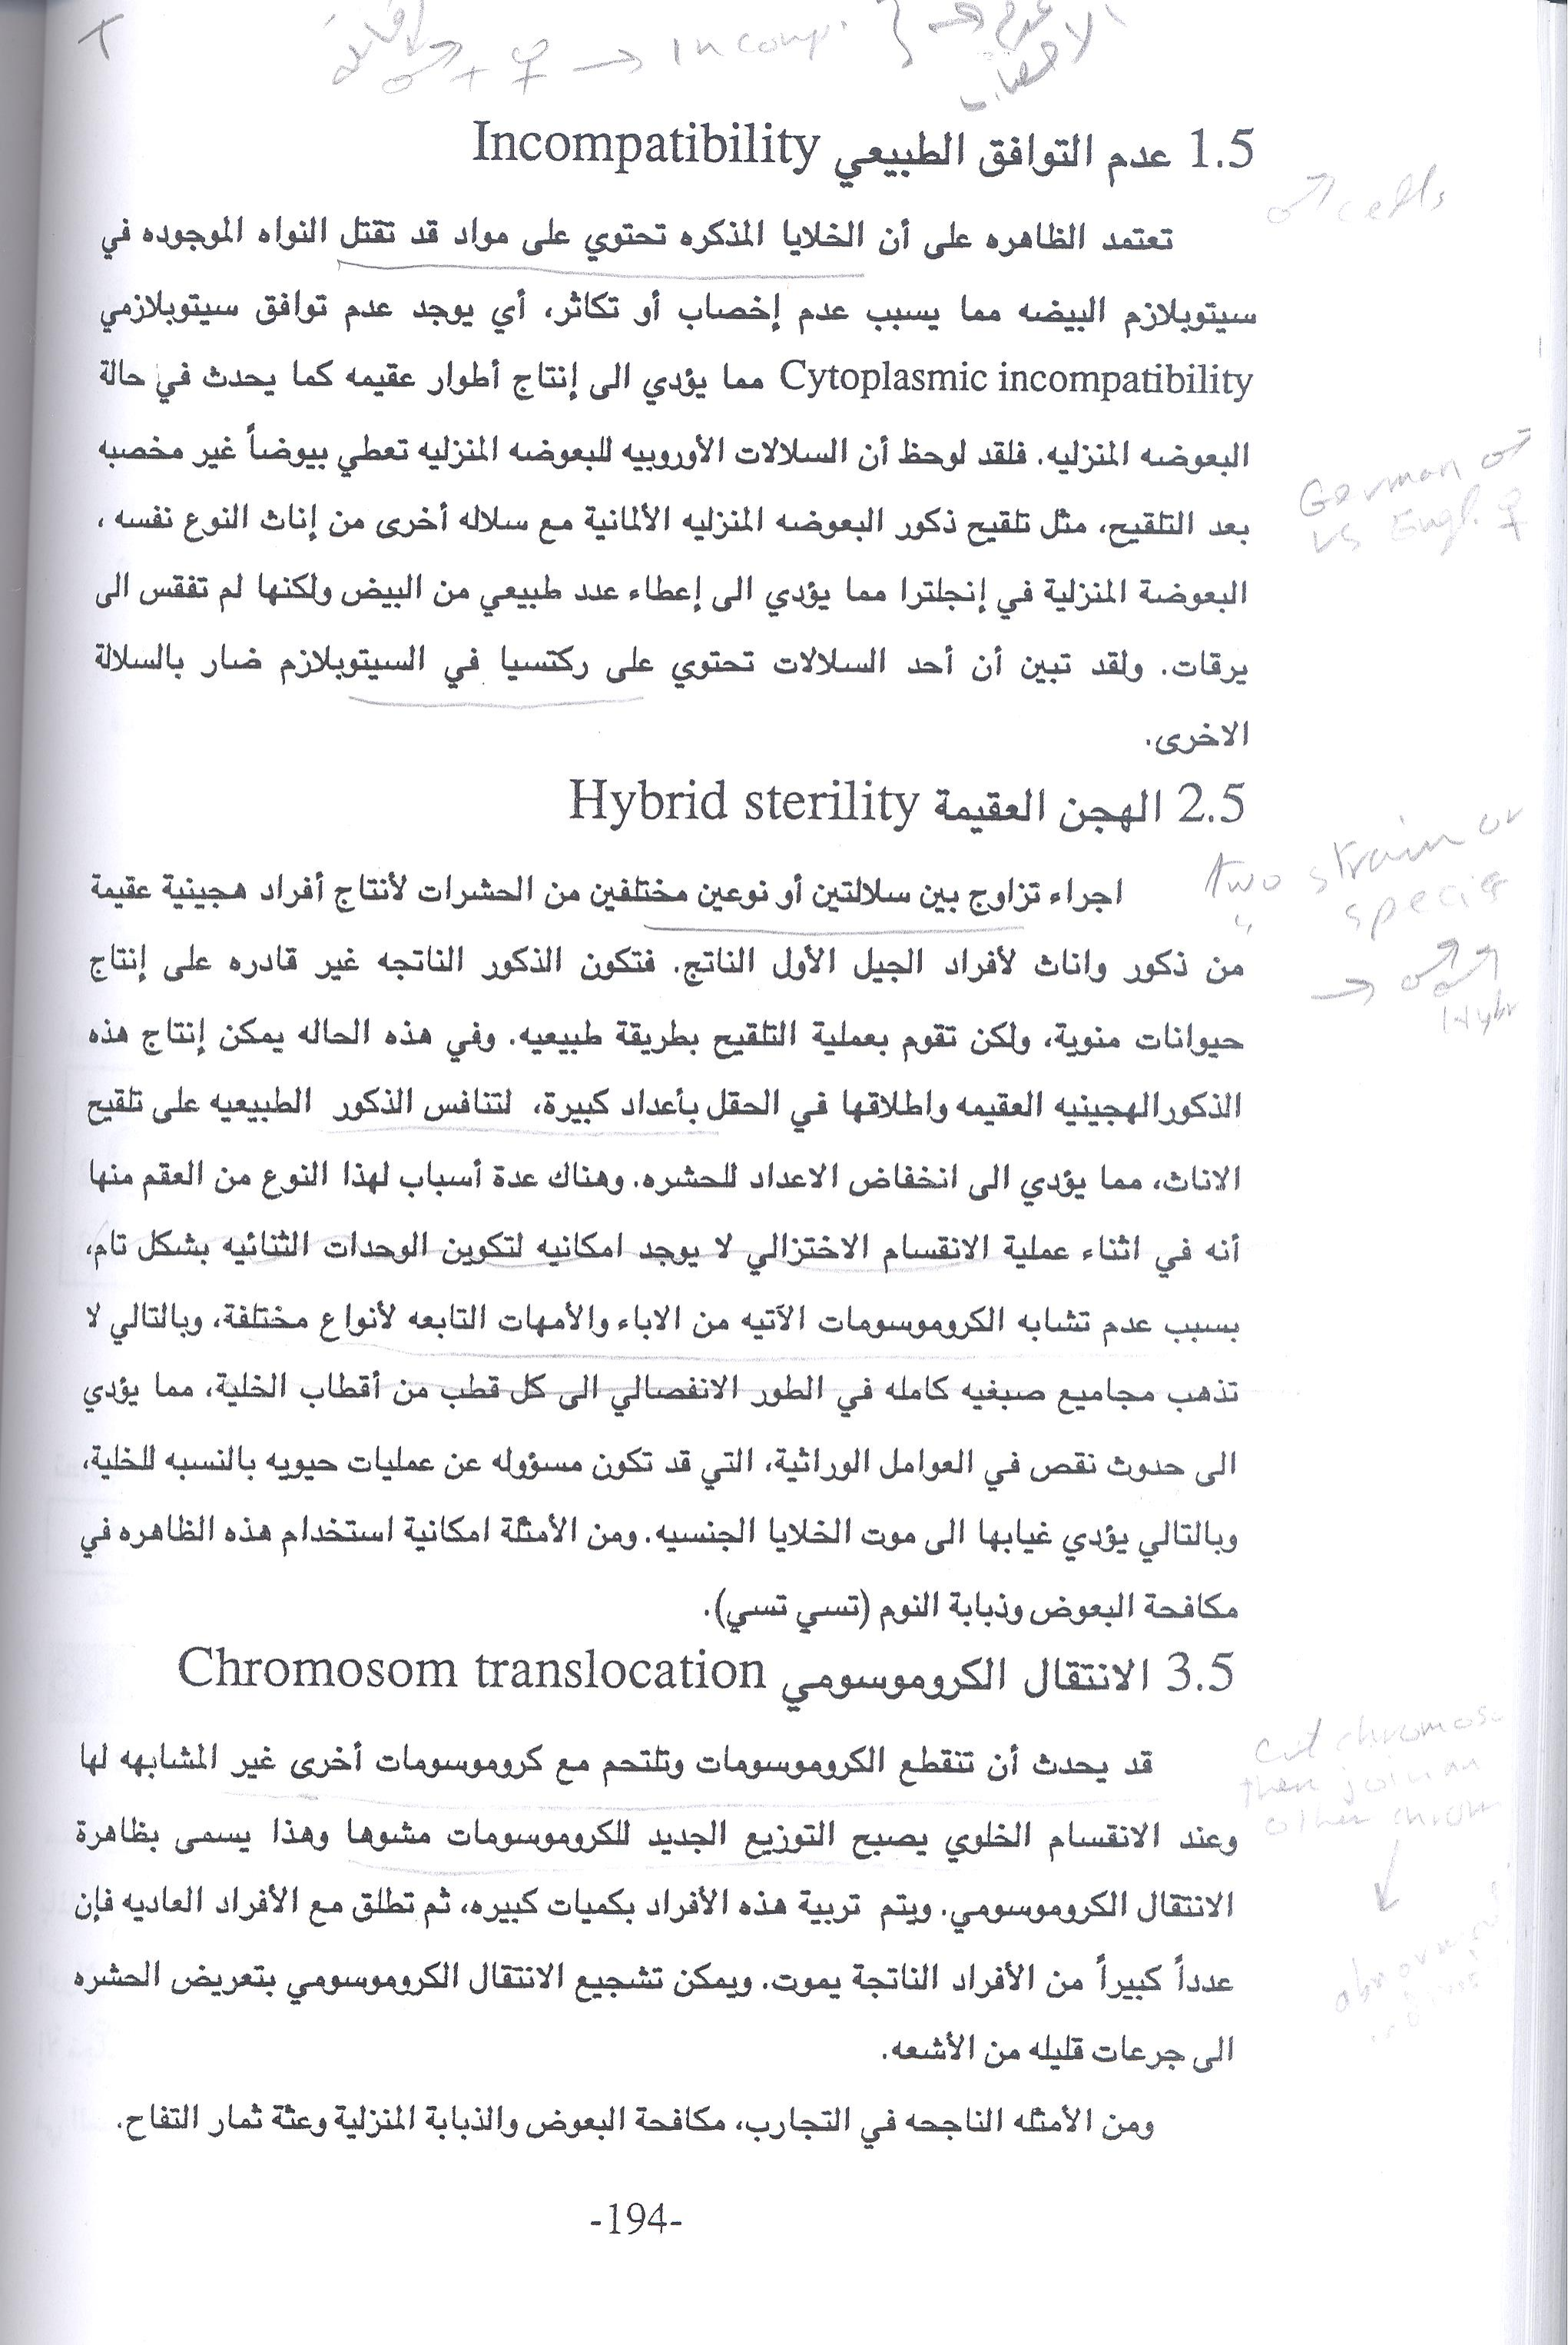 ♂ + ♀ → Incomp. } → عدم الاخصاب
1.5 عدم التوافق الطبيعي Incompatibility
♂ cells
تعتمد الظاهره على أن الخلايا المذكره تحتوي على مواد قد تقتل النواه الموجوده في
سيتوبلازم البيضه مما يسبب عدم إخصاب أو تكاثر، أي يوجد عدم توافق سيتوبلازمي
Cytoplasmic incompatibility مما يؤدي الى إنتاج أطوار عقيمه كما يحدث في حالة
البعوضه المنزليه. فلقد لوحظ أن السلالات الأوروبيه للبعوضه المنزليه تعطي بيوضاً غير مخصبه
German ♂
vs Engl. ♀
بعد التلقيح، مثل تلقيح ذكور البعوضه المنزليه الألمانية مع سلاله أخرى من إناث النوع نفسه ،
البعوضة المنزلية في إنجلترا مما يؤدي الى إعطاء عدد طبيعي من البيض ولكنها لم تفقس الى
يرقات. ولقد تبين أن أحد السلالات تحتوي على ركتسيا في السيتوبلازم ضار بالسلالة
الاخرى.
2.5 الهجن العقيمة Hybrid sterility
two strain or
species
اجراء تزاوج بين سلالتين أو نوعين مختلفين من الحشرات لأنتاج أفراد هجينية عقيمة
من ذكور واناث لأفراد الجيل الأول الناتج. فتكون الذكور الناتجه غير قادره على إنتاج
→ ♂♂
Hybr
حيوانات منوية، ولكن تقوم بعملية التلقيح بطريقة طبيعيه. وفي هذه الحاله يمكن إنتاج هذه
الذكورالهجينيه العقيمه واطلاقها في الحقل بأعداد كبيرة، لتنافس الذكور الطبيعيه على تلقيح
الاناث، مما يؤدي الى انخفاض الاعداد للحشره. وهناك عدة أسباب لهذا النوع من العقم منها
أنه في اثناء عملية الانقسام الاختزالي لا يوجد امكانيه لتكوين الوحدات الثنائيه بشكل تام،
بسبب عدم تشابه الكروموسومات الآتيه من الاباء والأمهات التابعه لأنواع مختلفة، وبالتالي لا
تذهب مجاميع صبغيه كامله في الطور الانفصالي الى كل قطب من أقطاب الخلية، مما يؤدي
الى حدوث نقص في العوامل الوراثية، التي قد تكون مسؤوله عن عمليات حيويه بالنسبه للخلية،
وبالتالي يؤدي غيابها الى موت الخلايا الجنسيه. ومن الأمثلة امكانية استخدام هذه الظاهره في
مكافحة البعوض وذبابة النوم (تسي تسي).
3.5 الانتقال الكروموسومي Chromosom translocation
cut chromoso
then join an
other chrom
قد يحدث أن تنقطع الكروموسومات وتلتحم مع كروموسومات أخرى غير المشابهه لها
وعند الانقسام الخلوي يصبح التوزيع الجديد للكروموسومات مشوها وهذا يسمى بظاهرة
الانتقال الكروموسومي. ويتم تربية هذه الأفراد بكميات كبيره، ثم تطلق مع الأفراد العاديه فإن
عدداً كبيراً من الأفراد الناتجة يموت. ويمكن تشجيع الانتقال الكروموسومي بتعريض الحشره
الى جرعات قليله من الأشعه.
ومن الأمثله الناجحه في التجارب، مكافحة البعوض والذبابة المنزلية وعثة ثمار التفاح.
-194-